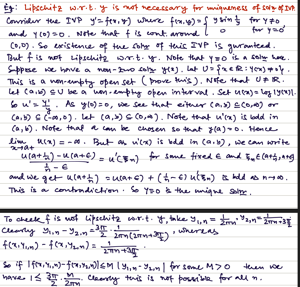 Eg: Lipschitz w.r.t. y is not necessary for uniqueness of soln. of IVP
Consider the IVP y' = f(x,y) where f(x,y) = { y sin 1/y for y≠0
0 for y=0
and y(0)=0. Note that f is cont. around
(0,0). So existence of the soln of this IVP is guranteed.
But f is not Lipschitz w.r.t. y. Note that y≡0 is a soln here.
Suppose we have a non-zero soln y(x). Let U = {x∈R : y(x)≠0}.
This is a non-empty open set (Prove this). Note that U≠R.
Let (a,b) ⊆ U be a non-empty open interval. Set u(x) = log|y(x)|.
So u' = y'/y. As y(0)=0, we see that either (a,b) ⊆ (0,∞) or
(a,b) ⊆ (-∞,0). Let (a,b) ⊆ (0,∞). Note that u'(x) is bdd in
(a,b). Note that a can be chosen so that y(a)=0. Hence
lim x→a+ u(x) = -∞. But as u'(x) is bdd in (a,b), we can write
u(a+1/n) - u(a+ϵ) / 1/n - ϵ = u'(ξn) for some fixed ϵ and ξn ∈ (a+1/n, a+ϵ)
and we get u(a+1/n) = u(a+ϵ) + (1/n - ϵ) u'(ξn) is bdd as n→∞.
This is a contradiction. So y≡0 is the unique soln.
To check f is not Lipschitz w.r.t. y, take y1,n = 1/2πn, y2,n = 1/2πn+3π/2
Clearly y1,n - y2,n = 3π/2 · 1/2πn(2πn+3π/2), whereas
f(x,y1,n) - f(x,y2,n) = 1/2πn+3π/2.
So if |f(x,y1,n) - f(x,y2,n)| ≤ M |y1,n - y2,n| for some M>0 then we
have 1 ≤ 3π/2 · M/2πn. Clearly this is not possible for all n.